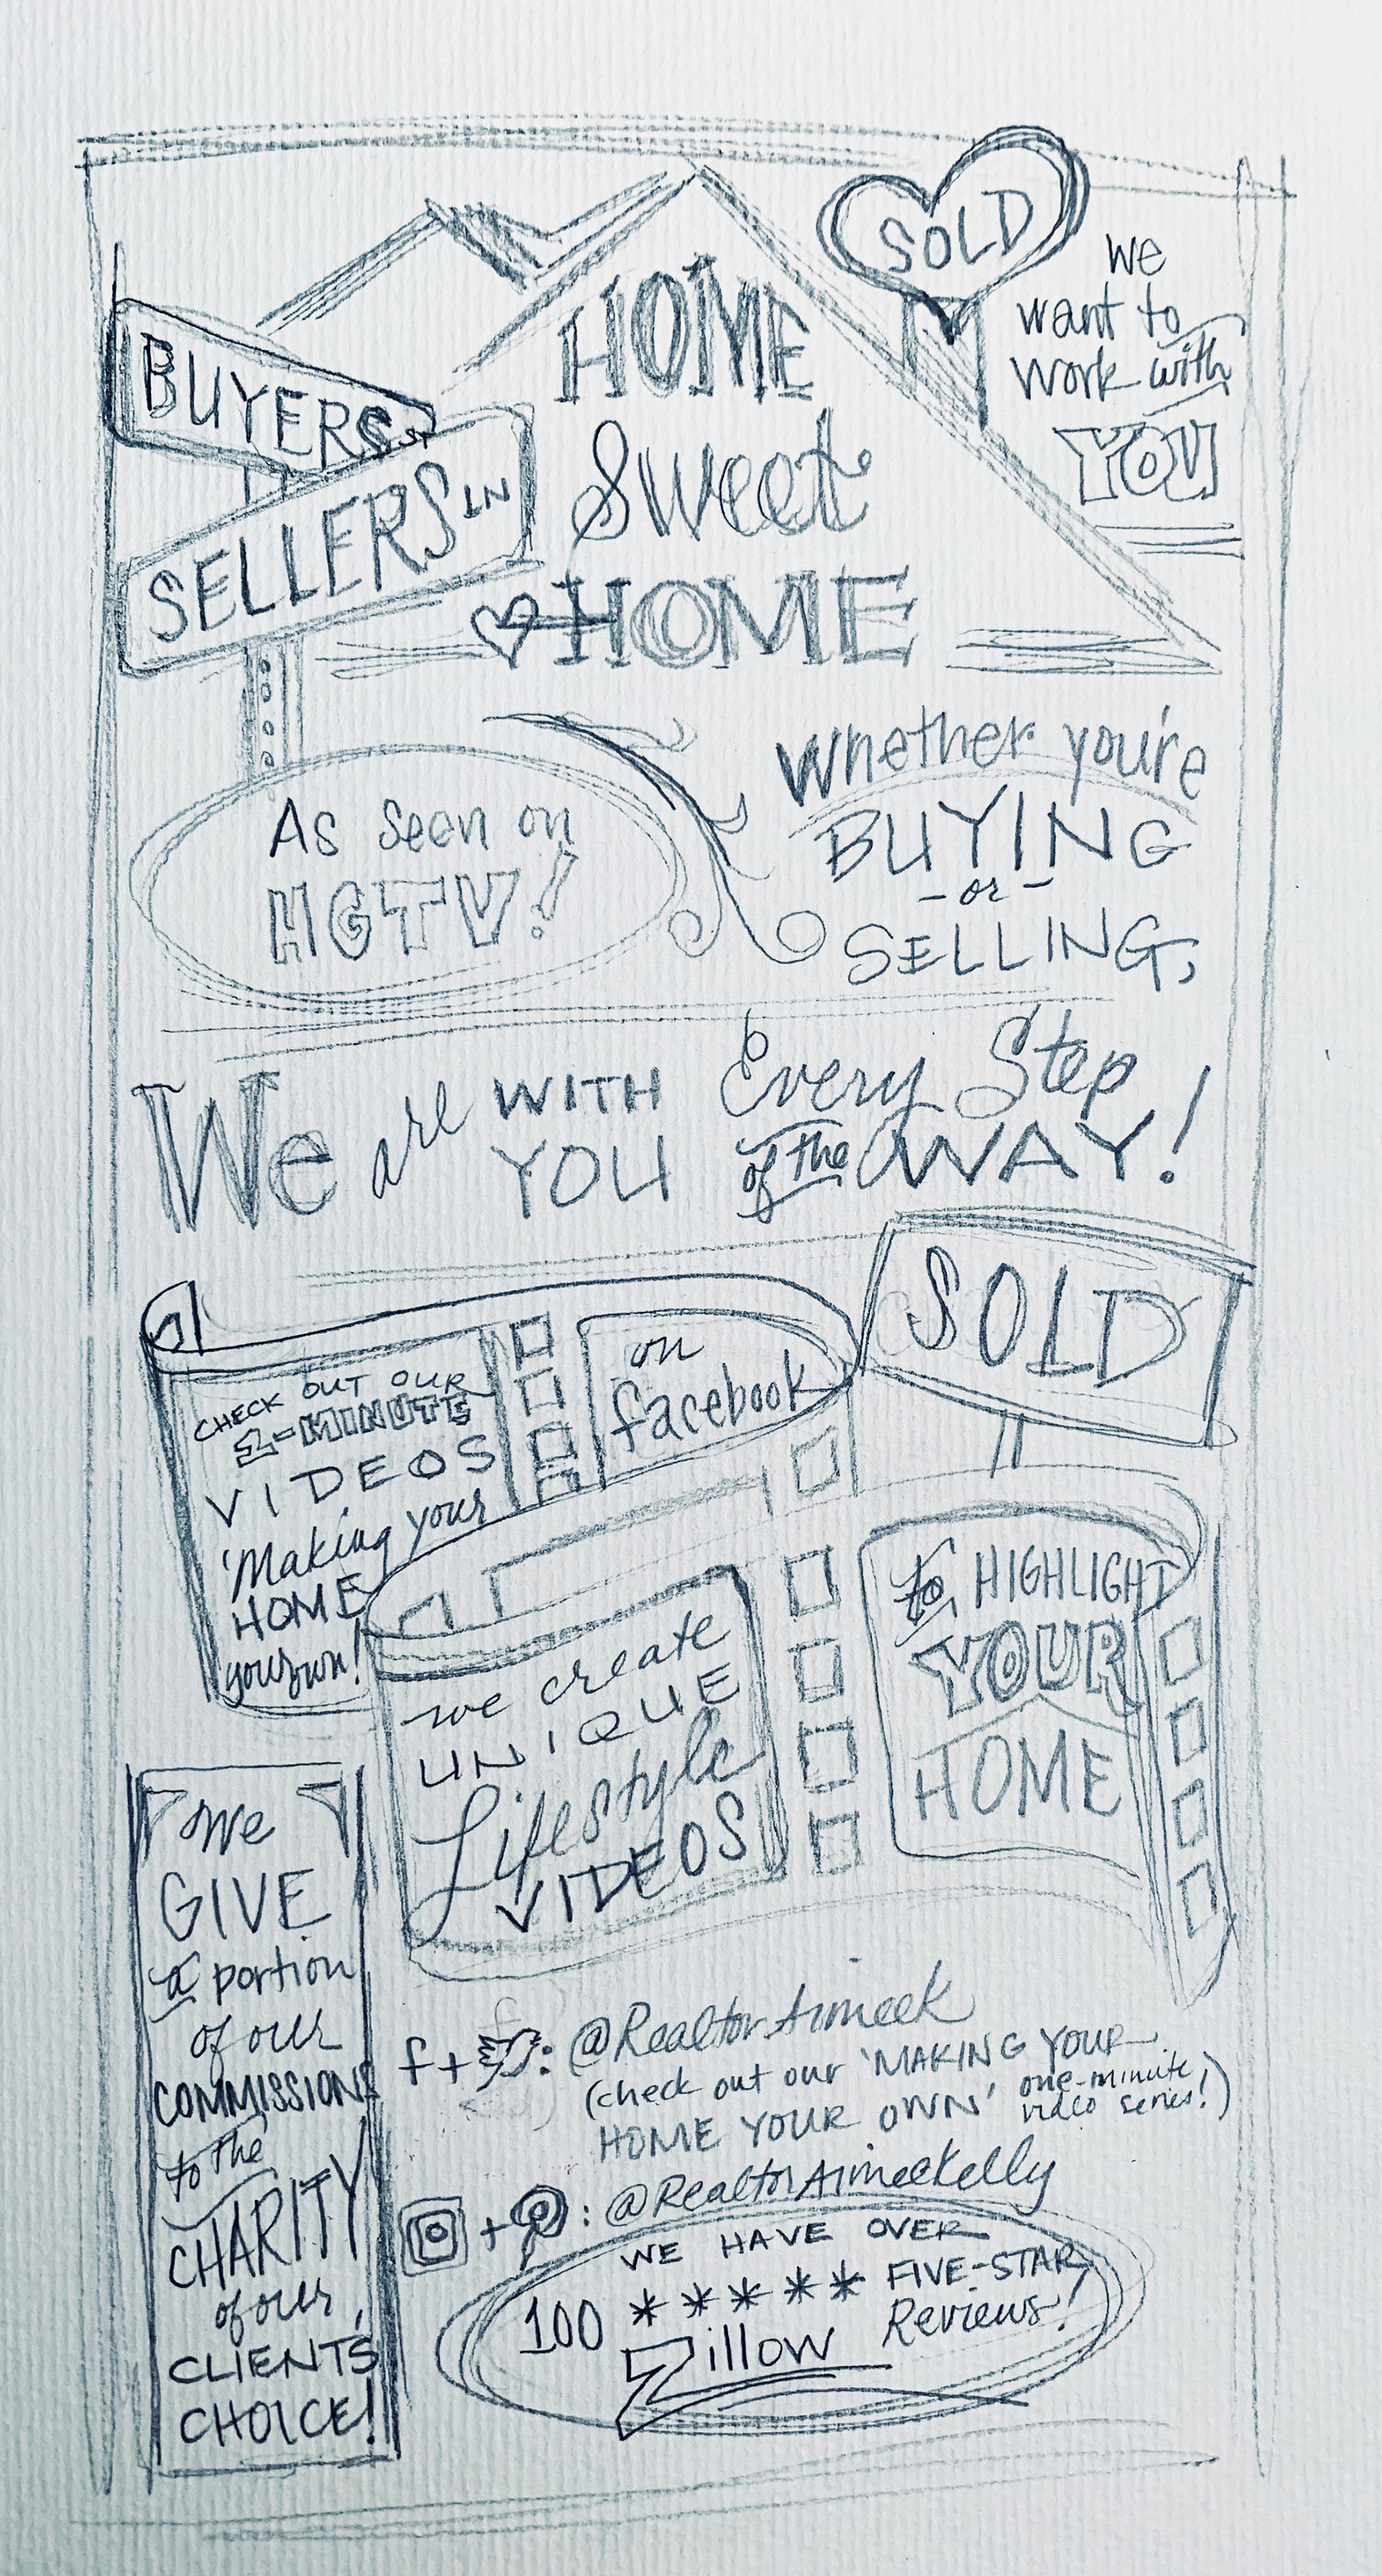 SOLD
we
want to
work with
YOU
BUYERS ST
SELLERS LN
HOME
Sweet
HOME
As seen on
HGTV!
Whether you're
BUYING
- or -
SELLING,
We are WITH YOU
Every Step
of the WAY!
SOLD
CHECK OUT OUR
1-MINUTE
VIDEOS
'Making your
HOME
your own!'
on
facebook
we create
UNIQUE
Lifestyle
VIDEOS
to HIGHLIGHT
YOUR
HOME
We
GIVE
a portion
of our
COMMISSIONS
to the
CHARITY
of our
CLIENTS'
CHOICE!
f + : @RealtorAimeeK
(check out our 'MAKING YOUR
HOME YOUR OWN' one-minute
video series!)
+ : @RealtorAimeeKelly
WE HAVE OVER
100 ***** FIVE-STAR
Zillow Reviews!